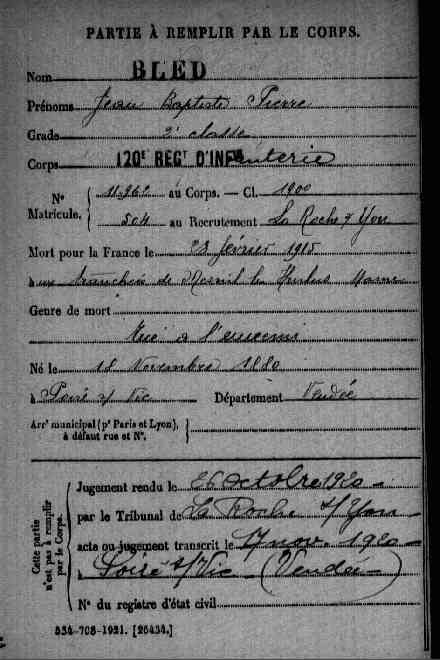 PARTIE À REMPLIR PAR LE CORPS.
Nom BLED
Prénoms Jean Baptiste Pierre
Grade 2e classe
Corps 120E RÉGT D'INFanterie
No Matricule. 11.962 au Corps. — Cl. 1900
504 au Recrutement La Roche s/ Yon
Mort pour la France le 23 février 1915
aux tranchées de Mesnil les Hurlus Marne
Genre de mort
Tué à l'ennemi
Né le 18 Novembre 1880
à Poiré s/ Vie Département Vendée
Arrt municipal (pr Paris et Lyon), à défaut rue et No.
Cette partie n'est pas à remplir par le Corps.
Jugement rendu le 26 octobre 1920
par le Tribunal de La Roche s/Yon
acte ou jugement transcrit le 17 nov. 1920
à Poiré s/Vie (Vendée)
No du registre d'état civil
534-708-1921. [26434.]